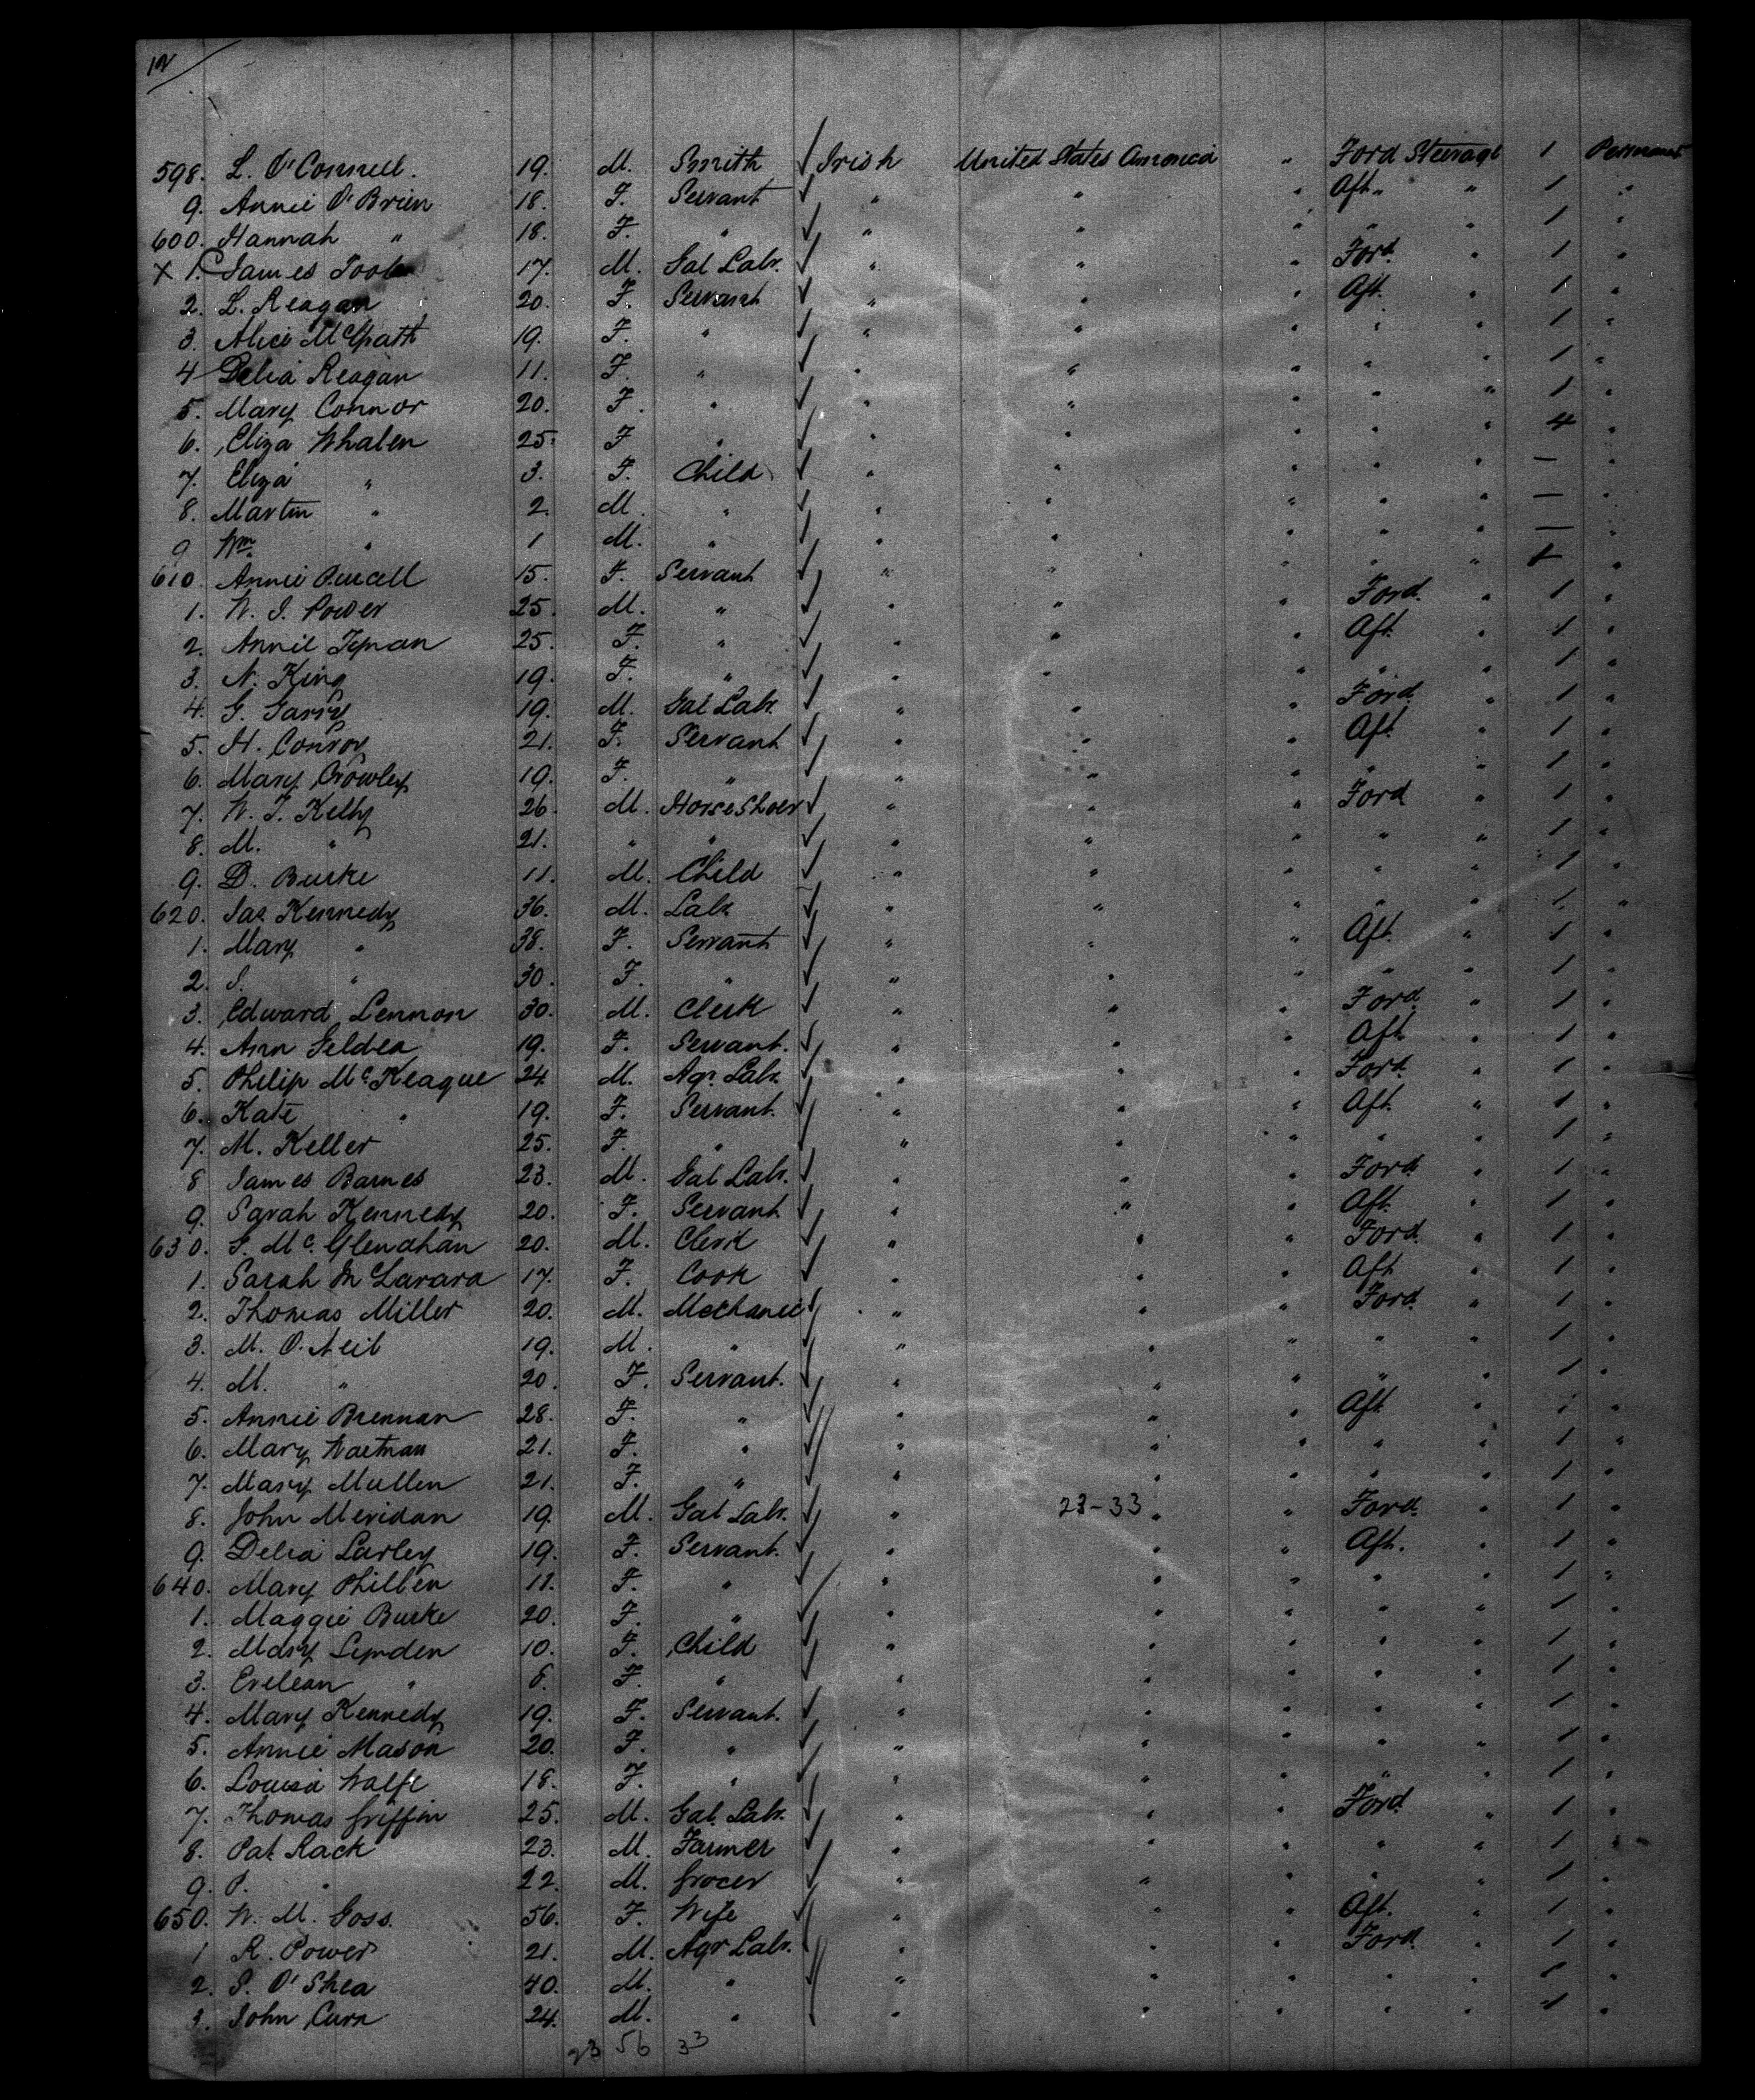 12
598. L. O'Connell. 19. M. Smith Irish United States America " Ford Steerage 1 Permanent
9. Annie O'Brien 18. F. Servant " " " Aft " " 1 "
600. Hannah " 18. F. " " " " " " 1 "
X 1. James Toole 17. M. Gal Labr. " " " Ford. " 1 "
2. L. Reagan 20. F. Servant " " " Aft. " 1 "
3. Alice McGrath 19. F. " " " " " " 1 "
4 Delia Reagan 11. F. " " " " " " 1 "
5. Mary Connor 20. F. " " " " " " 1 "
6. Eliza Whalen 25. F " " " " " " 4 "
7. Eliza " 3. F. Child " " " " " — "
8. Martin " 2. M. " " " " " " — "
9 Wm. " 1 M. " " " " " " — "
610. Annie Purcell 15. F. Servant " " " " " 1 "
1. W. J. Power 25. M. " " " " Ford. " 1 "
2. Annie 25. F. " " " " Aft. " 1 "
3. N. King 19. F. " " " " " " 1 "
4. G. Garry 19. M. Gal Labr. " " " Ford. " 1 "
5. H. Conroy 21. F. Servant " " " Aft. " 1 "
6. Mary Crowley 19. F. " " " " " " 1 "
7. W. J. Kelly 26. M. Horse Shoer " " " Ford " 1 "
8. M. " 21. " " " " " " " 1 "
9. D. Burke 11. M. Child " " " " " 1 "
620. Jas Kennedy 36. M. Labr. " " " " " 1 "
1. Mary " 38. F. Servant " " " Aft. " 1 "
2. S. " 30. F. " " " " " " 1 "
3. Edward Lennon 30. M. Clerk " " " Ford. " 1 "
4. Ann Geldea 19. F. Servant. " " " Aft. " 1 "
5. Philip McKeague 24. M. Agr. Labr. " " " Ford. " 1 "
6. Kate " 19. F. Servant. " " " Aft. " 1 "
7. M. Keller 25. F. " " " " " " 1 "
8 James Barnes 23. M. Gal Labr. " " " Ford. " 1 "
9. Sarah Kennedy 20. F. Servant. " " " Aft. " 1 "
630. S. Mc. Glenahan 20. M. Clerk " " " Ford. " 1 "
1. Sarah 17. F. Cook " " " Aft " 1 "
2. Thomas Miller 20. M. Mechanic " " " Ford. " 1 "
3. M. O. Neil 19. M. " " " " " " 1 "
4. M. " 20. F. Servant. " " " " " 1 "
5. Annie Brennan 28. F. " " " " Aft. " 1 "
6. Mary 21. F. " " " " " " 1 "
7. Mary Mullen 21. F. " " " " " " 1 "
8. John Meridan 19. M. Gal Labr. " 23-33 " " Ford. " 1 "
9. Delia Larley 19. F. Servant. " " " Aft. " 1 "
640. Mary Philben 11. F. " " " " " " 1 "
1. Maggie Burke 20. F. " " " " " " 1 "
2. Mary Lynden 10. F. Child " " " " " 1 "
3. Evelean " 8. F. " " " " " " 1 "
4. Mary Kennedy 19. F. Servant. " " " " " 1 "
5. Annie Mason 20. F. " " " " " " 1 "
6. Louisa Walfe 18. F. " " " " " " 1 "
7. Thomas Griffin 25. M. Gal. Labr. " " " Ford. " 1 "
8. Pat Rack 23. M. Farmer " " " " " 1 "
9. P. " 22. M. Grocer " " " " " 1 "
650. W. M. Goss. 56. F. Wife " " " Aft. " 1 "
1 R. Power 21. M. Agr Labr. " " " Ford. " 1 "
2. S. O'Shea 40. M. " " " " " " 1 "
3. John Curn 24. M. " " " " " " 1 "
23 56 33